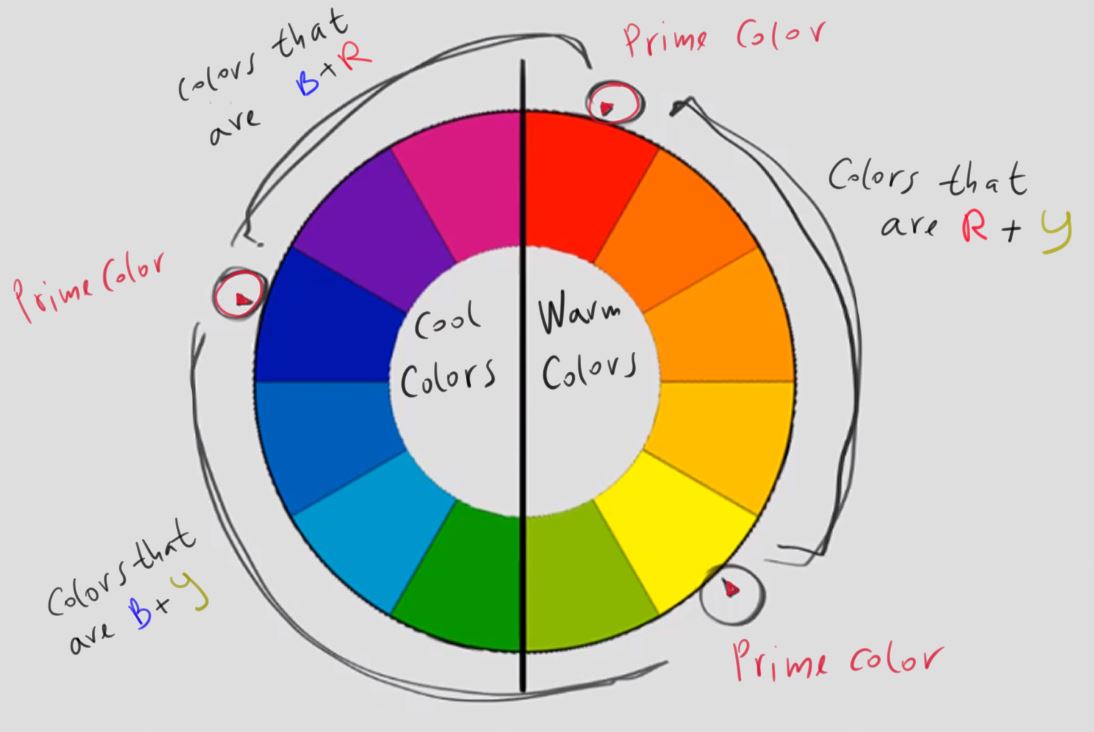 Colors that
are B+R
Prime Color
Colors that
are R + Y
Prime Color
Cool
Colors
Warm
Colors
Colors that
are B+Y
Prime color